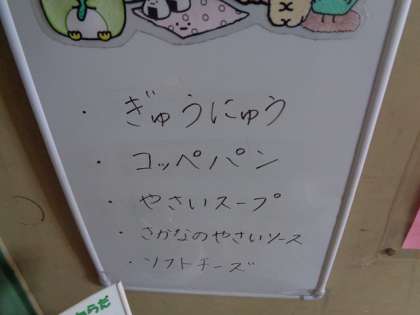 ・ぎゅうにゅう
・コッペパン
・やさいスープ
・さかなのやさいソース
・ソフトチーズ